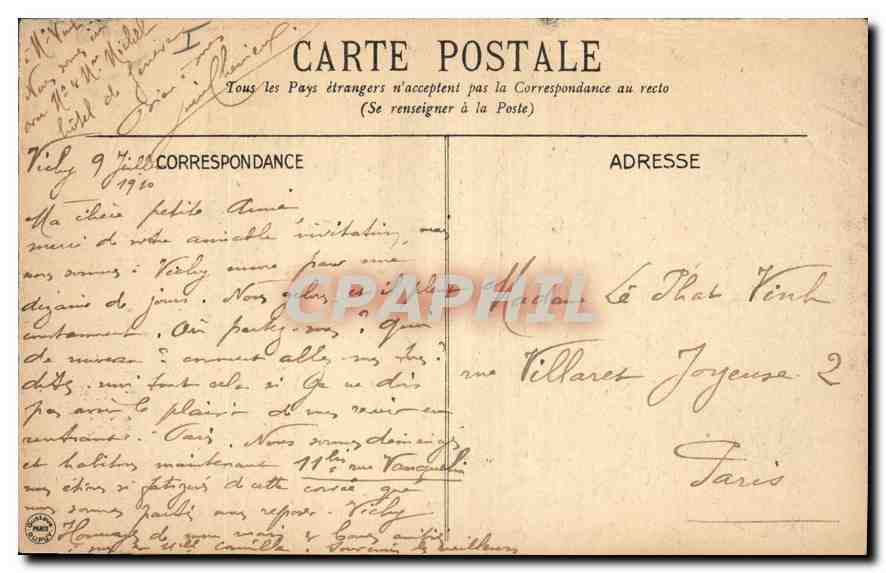 Mr Vinh
Nous sommes ici
avec Mr & Mme Michel
hôtel de Genève
Bien à vous
CARTE POSTALE
Tous les Pays étrangers n'acceptent pas la Correspondance au recto
(Se renseigner à la Poste)
CORRESPONDANCE
Vichy 9 Juillet
1910
Ma chère petite Amie
merci de votre aimable invitation, mais
nous sommes à Vichy encore pour une
dizaine de jours. Nous gelons et il pleut
constamment. Où partez-vous? Quoi
de nouveau? comment allez vous tous?
dites-moi tout cela si je ne dois
pas avoir le plaisir de vous revoir en
rentrant à Paris. Nous sommes déménagés
et habitons maintenant 11bis rue Vauquelin
nous étions si fatigués de cette corvée que
nous sommes partis nous reposer à Vichy
Hommages de mon mari & bons amitiés
Souvenirs les meilleurs
ADRESSE
Madame Lê Phat Vinh
rue Villaret Joyeuse 2
Paris
CPAPHIL
Gustave
PARIS
DUPUY